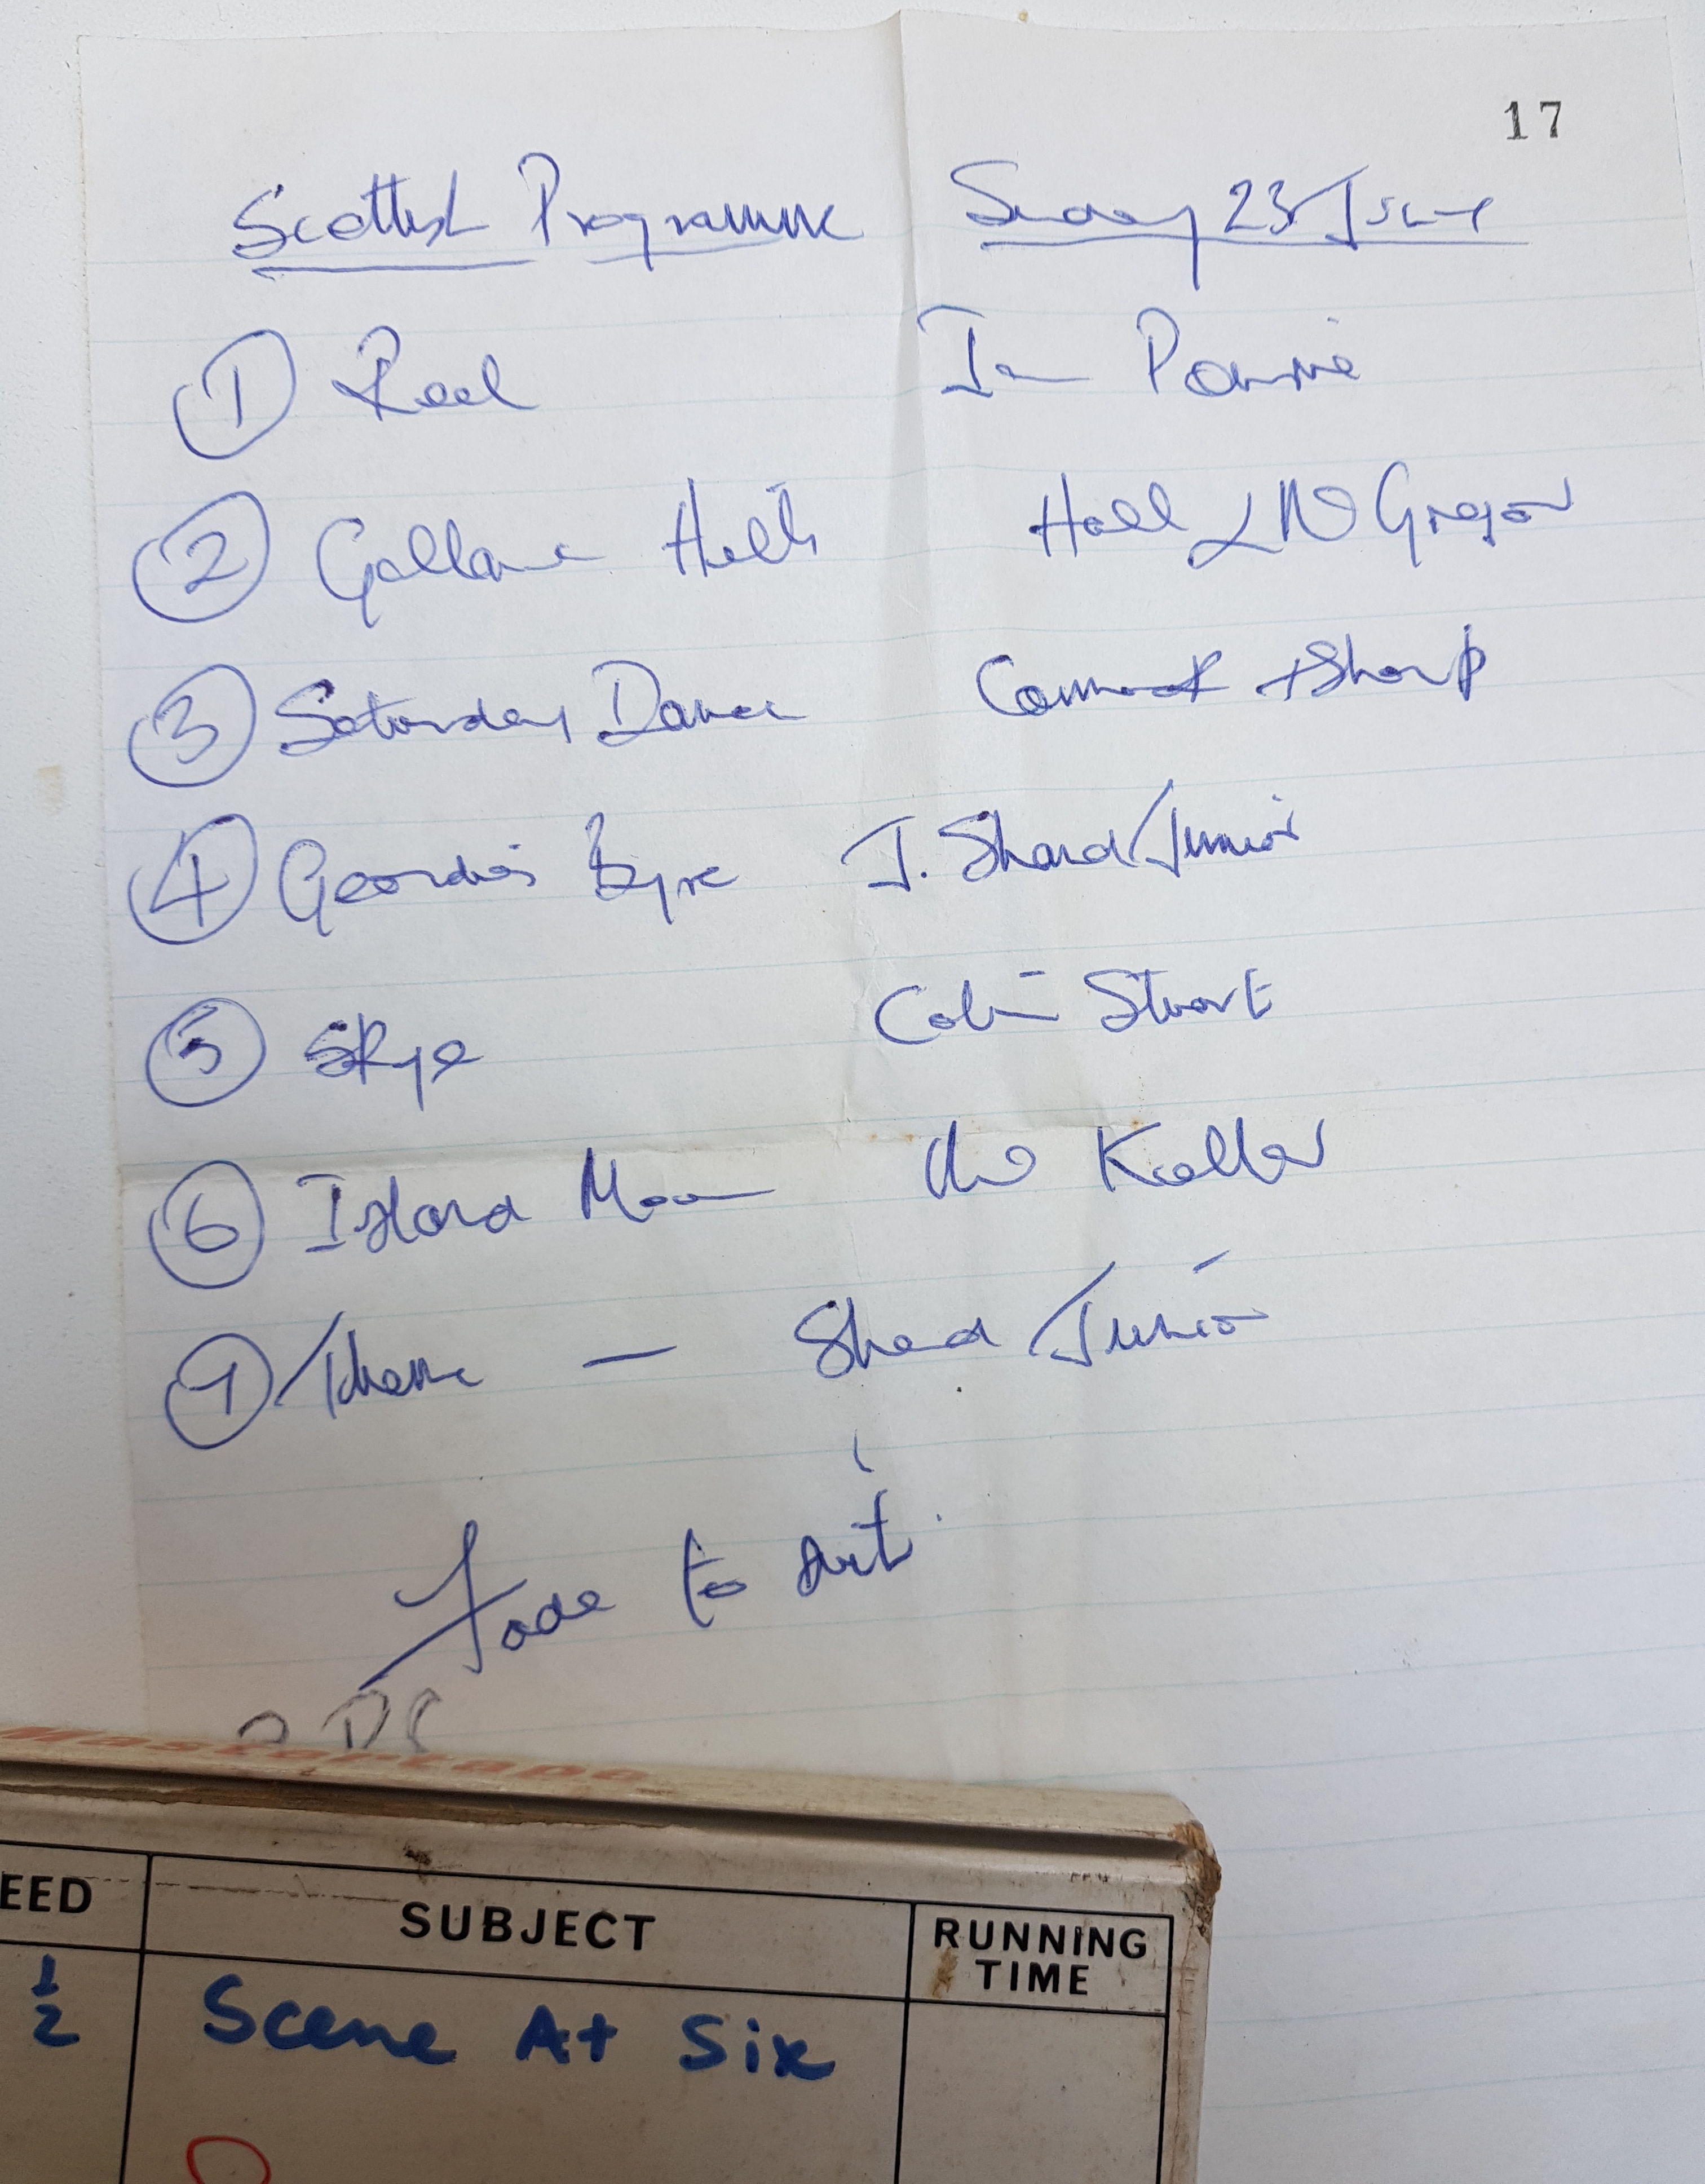 17
Scottish Programme Sunday 23 June
1 Reel Ian Powrie
2 Gallowa Hills Hall & McGregor
3 Saturday Dance Cammock + Sharp
4 Geordie's Byre J. Shand Junior
5 Skye Colin Stuart
6 Island Moon Kellar
7 Theme — Shand Junior
Fade to suit
Mastertape
EED SUBJECT RUNNING TIME
1/2 Scene At Six